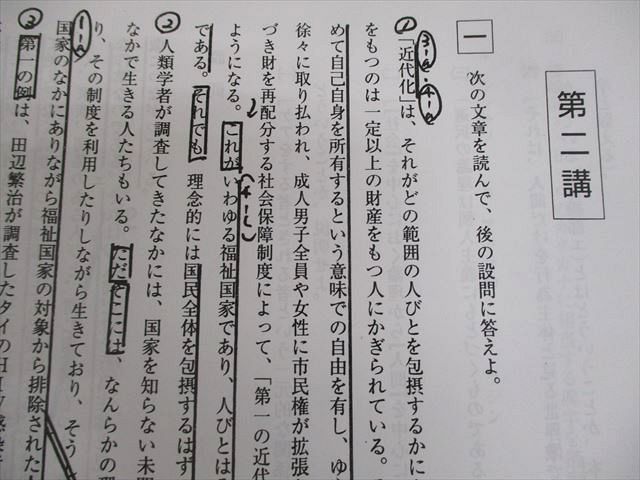 第二講
一 次の文章を読んで、後の設問に答えよ。
① 「近代化」は、それがどの範囲の人びとを包摂するかによ
をもつのは一定以上の財産をもつ人にかぎられている。
めて自己自身を所有するという意味での自由を有し、ゆ
徐々に取り払われ、成人男子全員や女性に市民権が拡張
づき財を再配分する社会保障制度によって、「第一の近代
ようになる。これがいわゆる福祉国家であり、人びとは
である。それでも、理念的には国民全体を包摂するはず
② 人類学者が調査してきたなかには、国家を知らない未開
なかで生きる人たちもいる。ただそこには、なんらかの理
り、その制度を利用したりしながら生きており、そう
国家のなかにありながら福祉国家の対象から排除された人
③ 第一の例は、田辺繁治が調査したタイのHIV感染